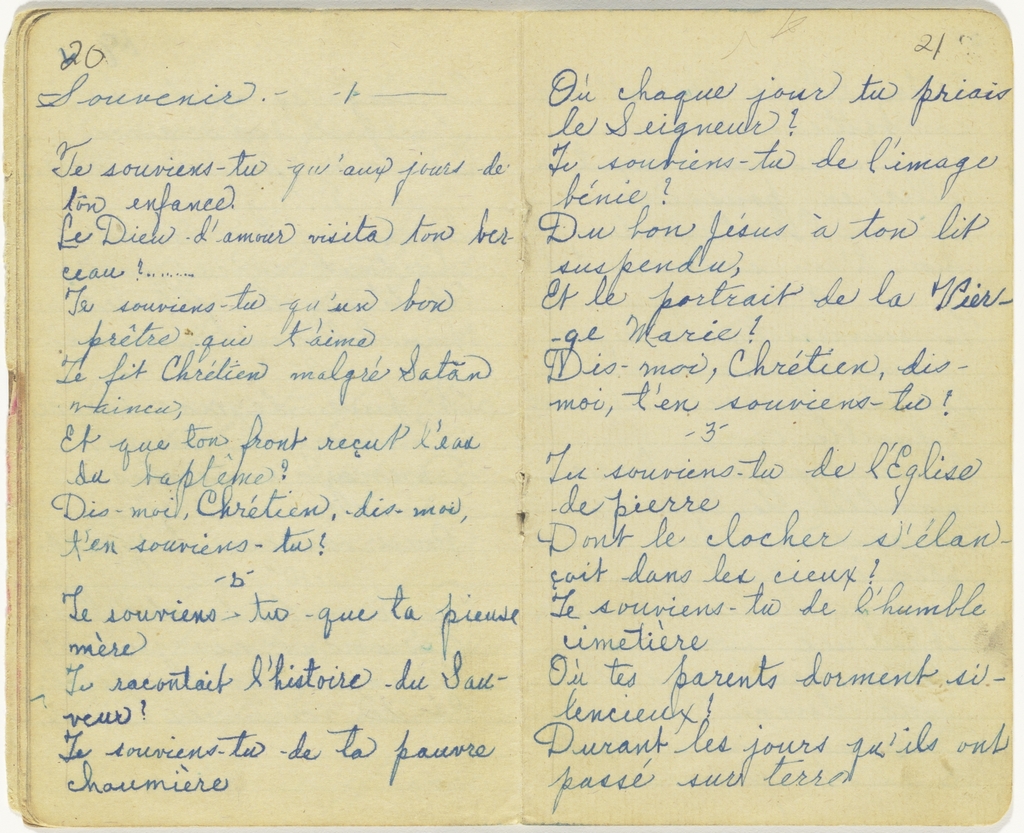 20
Souvenir. - -1- —
Te souviens-tu qu'aux jours de
ton enfance.
Le Dieu d'amour visita ton ber-
ceau ?.........
Te souviens-tu qu'un bon
prêtre qui t'aima
Te fit Chrétien malgré Satan
vaincu,
Et que ton front reçut l'eau
du baptême?
Dis-moi, Chrétien, dis-moi,
t'en souviens-tu?
Te souviens-tu que ta pieuse
mère
Te racontait l'histoire du Sau-
veur?
Te souviens-tu de ta pauvre
chaumière
21
Où chaque jour tu priais
le Seigneur?
Te souviens-tu de l'image
bénie?
Du bon Jésus à ton lit
suspendu,
Et le portrait de la Vier-
-ge Marie?
Dis-moi, Chrétien, dis-
moi, t'en souviens-tu?
-3-
Tu souviens-tu de l'Eglise
de pierre
Dont le clocher s'élan-
çait dans les cieux?
Te souviens-tu de l'humble
cimetière
Où tes parents dorment si-
lencieux?
Durant les jours qu'ils ont
passé sur terre